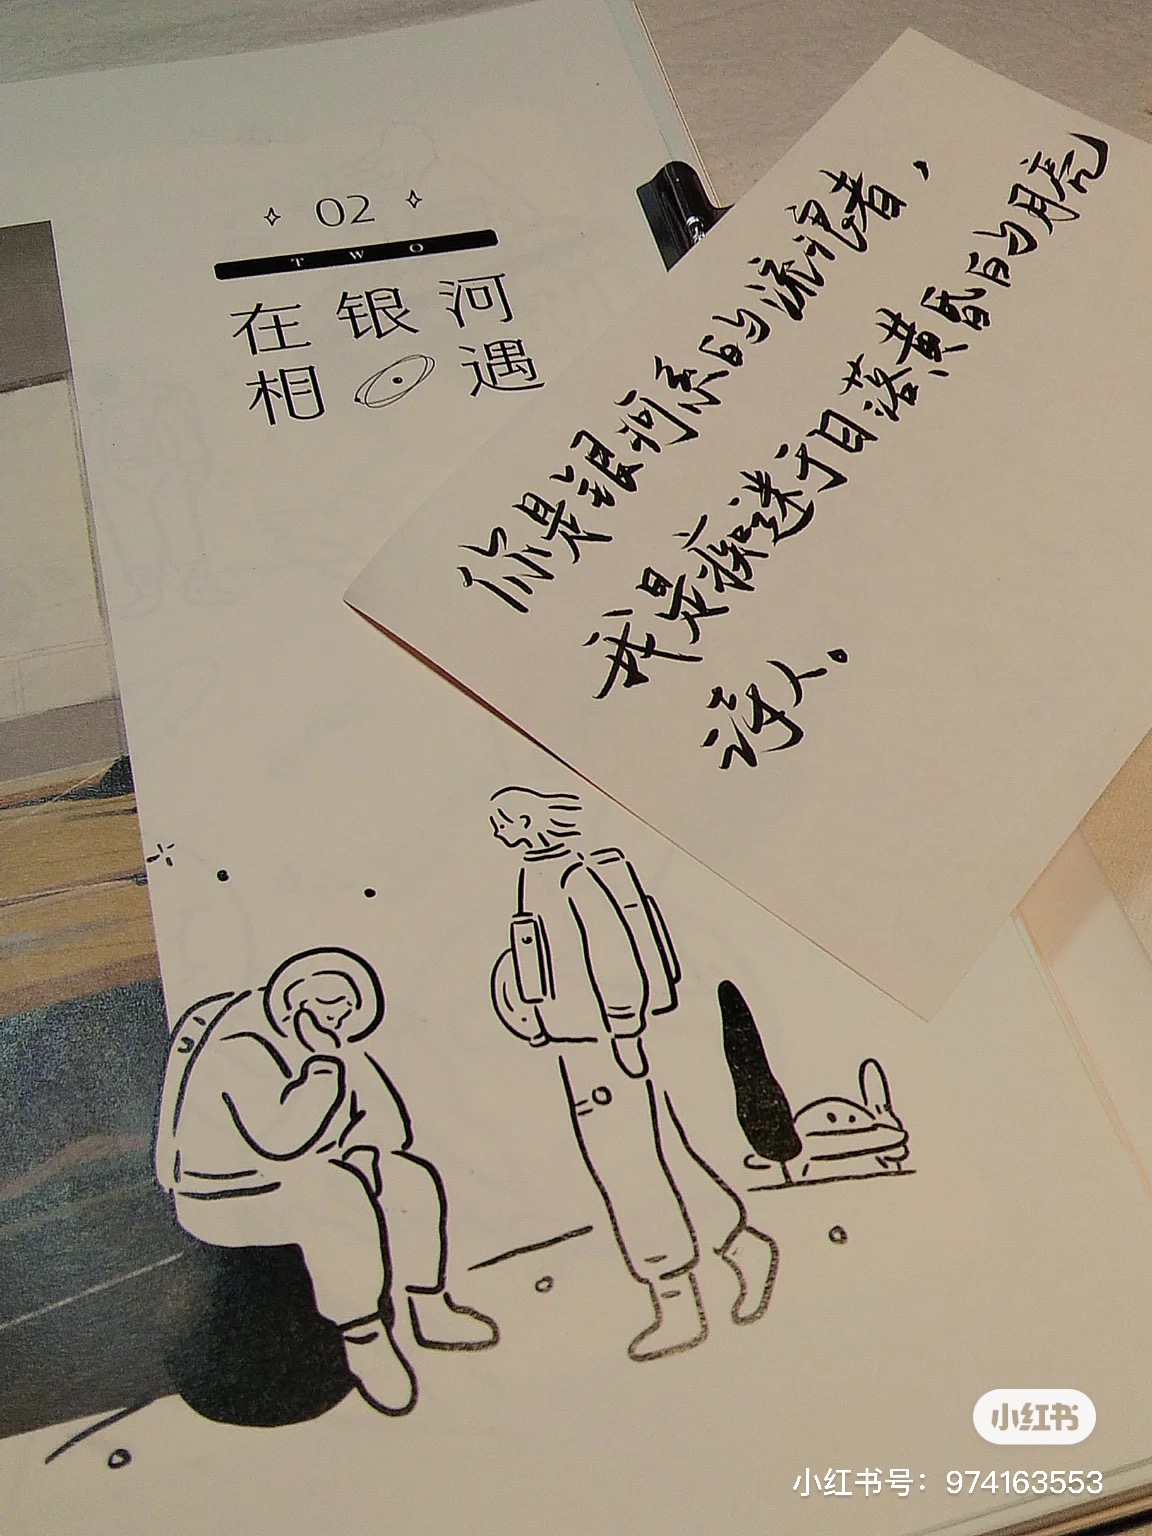 02
TWO
在银河
相遇
你是银河系的流浪者，
我是痴迷于日落黄昏的月亮
诗人。
小红书
小红书号：974163553